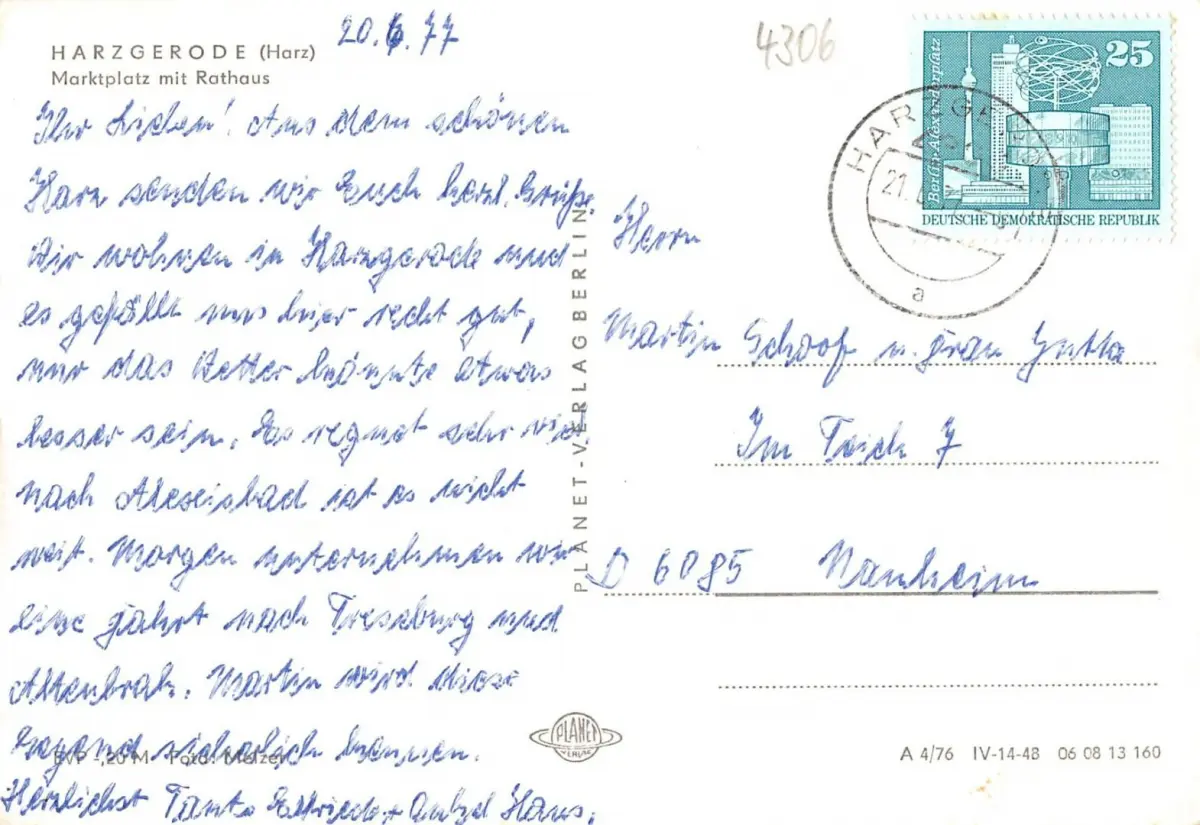 20.6.77
4306
HARZGERODE (Harz)
Marktplatz mit Rathaus
Ihr Lieben! Aus dem schönen
Harz senden wir Euch herzl. Grüße.
Wir wohnen in Harzgerode und
es gefällt uns hier recht gut,
nur das Wetter könnte etwas
besser sein. Es regnet sehr viel.
nach Alexisbad ist es nicht
weit. Morgen unternehmen wir
eine Fahrt nach Treseburg und
Altenbrak. Martin wird diese
Gegend sicherlich kennen.
Herzlichst Tante Elfriede + Onkel Hans.
EVP -,20 M Foto: Melzer
PLANET-VERLAG BERLIN
PLANET
VERLAG
Berlin-Alexanderplatz
25
DEUTSCHE DEMOKRATISCHE REPUBLIK
a
Herrn
Martin Schoof u. Frau Jutta
Im Teich 7
D 6085 Nanheim
A 4/76 IV-14-48 06 08 13 160